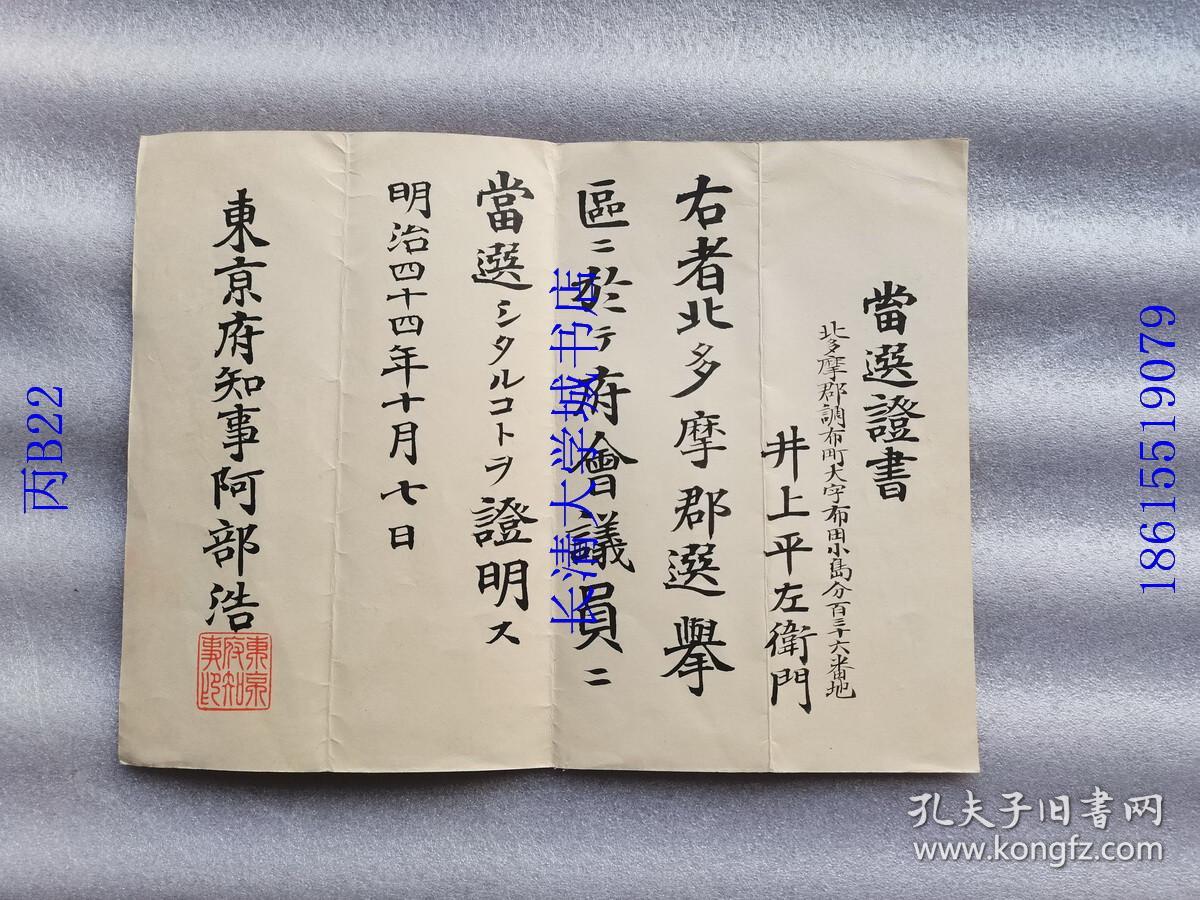 當選證書
北多摩郡調布町大字布田小島分百三十六番地
井上平左衛門
右者北多摩郡選擧
區ニ於テ府會議員ニ
當選シタルコトヲ證明ス
明治四十四年十月七日
東京府知事阿部浩
東京府知事印
长清大学城书店
丙B22
18615519079
孔夫子旧书网
www.kongfz.com